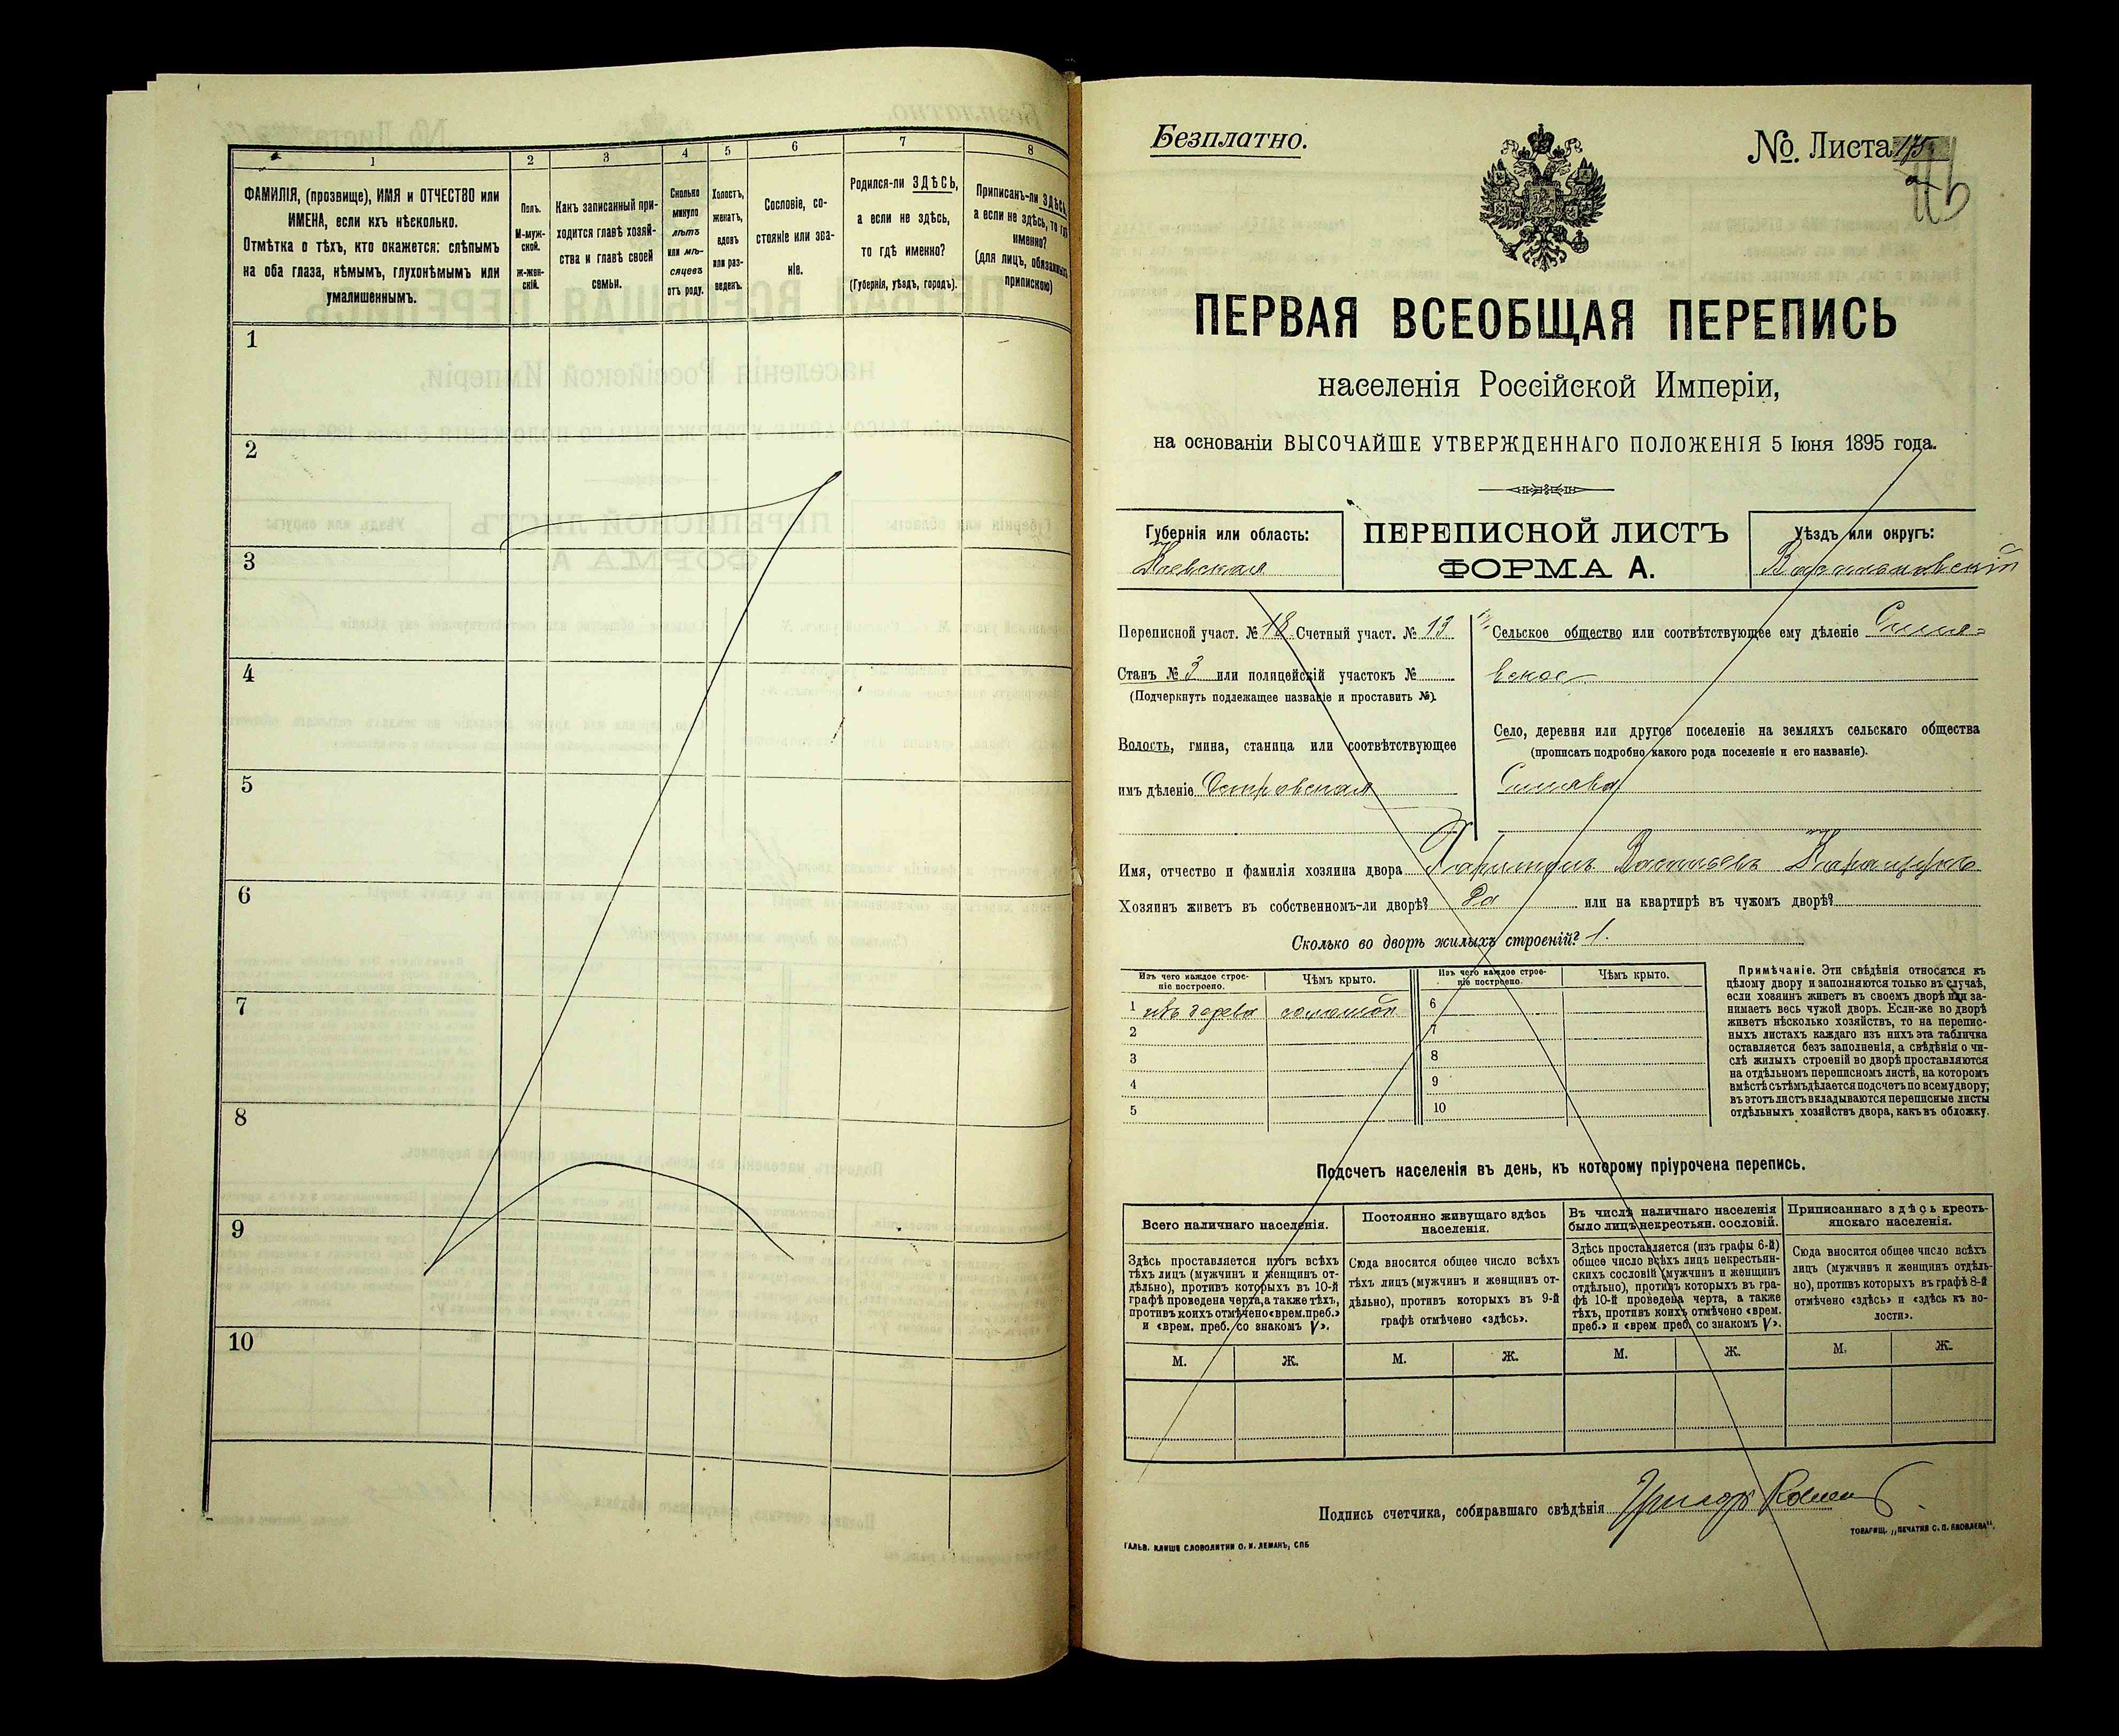 1
2
3
4
5
6
7
8
ФАМИЛІЯ, (прозвище), ИМЯ и ОТЧЕСТВО или
ИМЕНА, если ихъ нѣсколько.
Отмѣтка о тѣхъ, кто окажется: слѣпымъ
на оба глаза, нѣмымъ, глухонѣмымъ или
умалишеннымъ.
Полъ.
М-муж-
ской.
Ж-жен-
скій.
Какъ записанный при-
ходится главѣ хозяй-
ства и главѣ своей
семьи.
Сколько
минуло
лѣтъ
или мѣ-
сяцевъ
отъ роду.
Холостъ,
женатъ,
вдовъ
или раз-
веденъ.
Сословіе, со-
стояніе или зва-
ніе.
Родился-ли ЗДѢСЬ,
а если не здѣсь,
то гдѣ именно?
(Губернія, уѣздъ, городъ).
Приписанъ-ли ЗДѢСЬ,
а если не здѣсь, то гдѣ
именно?
(для лицъ, обязанныхъ
припискою)
1
2
3
4
5
6
7
8
9
10
Безплатно.
№. Листа
ПЕРВАЯ ВСЕОБЩАЯ ПЕРЕПИСЬ
населенія Россійской Имперіи,
на основаніи ВЫСОЧАЙШЕ УТВЕРЖДЕННАГО ПОЛОЖЕНІЯ 5 Іюня 1895 года.
Губернія или область:
Кіевская
ПЕРЕПИСНОЙ ЛИСТЪ
ФОРМА А.
Уѣздъ или округъ:
Васильковскій
Переписной участ. № 18 Счетный участ. № 13
Станъ № 3 или полицейскій участокъ №
(Подчеркнуть подлежащее названіе и проставить №).
Волость, гмина, станица или соотвѣтствующее
имъ дѣленіе Островская
Сельское общество или соотвѣтствующее ему дѣленіе
вское
Село, деревня или другое поселеніе на земляхъ сельскаго общества
(прописать подробно какого рода поселеніе и его названіе).
Имя, отчество и фамилія хозяина двора Харитонъ Васильевъ
Хозяинъ живетъ въ собственномъ-ли дворѣ? Да или на квартирѣ въ чужомъ дворѣ?
Сколько во дворѣ жилыхъ строеній? 1.
Изъ чего каждое строе-
ніе построено.
Чѣмъ крыто.
Изъ чего каждое строе-
ніе построено.
Чѣмъ крыто.
1 изъ дерева соломой
2
3
4
5
6
7
8
9
10
Примѣчаніе. Эти свѣдѣнія относятся къ
цѣлому двору и заполняются только въ случаѣ,
если хозяинъ живетъ въ своемъ дворѣ или за-
нимаетъ весь чужой дворъ. Если-же во дворѣ
живетъ нѣсколько хозяйствъ, то на перепис-
ныхъ листахъ каждаго изъ нихъ эта табличка
оставляется безъ заполненія, а свѣдѣнія о чи-
слѣ жилыхъ строеній во дворѣ проставляются
на отдѣльномъ переписномъ листѣ, на которомъ
вмѣстѣ съ тѣмъ дѣлается подсчетъ по всему двору;
въ этотъ листъ вкладываются переписные листы
отдѣльныхъ хозяйствъ двора, какъ въ обложку.
Подсчетъ населенія въ день, къ которому пріурочена перепись.
Всего наличнаго населенія.
Здѣсь проставляется итогъ всѣхъ
тѣхъ лицъ (мужчинъ и женщинъ от-
дѣльно), противъ которыхъ въ 10-й
графѣ проведена черта, а также тѣхъ,
противъ коихъ отмѣчено «врем. преб.»
и «врем. преб. со знакомъ V».
Постоянно живущаго здѣсь
населенія.
Сюда вносится общее число всѣхъ
тѣхъ лицъ (мужчинъ и женщинъ от-
дѣльно), противъ которыхъ въ 9-й
графѣ отмѣчено «здѣсь».
Въ числѣ наличнаго населенія
было лицъ некрестьян. сословій.
Здѣсь проставляется (изъ графы 6-й)
общее число всѣхъ лицъ некрестьян-
скихъ сословій (мужчинъ и женщинъ
отдѣльно), противъ которыхъ въ гра-
фѣ 10-й проведена черта, а также
тѣхъ, противъ коихъ отмѣчено «врем.
преб.» и «врем преб. со знакомъ V».
Приписаннаго здѣсь кресть-
янскаго населенія.
Сюда вносится общее число всѣхъ
лицъ (мужчинъ и женщинъ отдѣль-
но), противъ которыхъ въ графѣ 8-й
отмѣчено «здѣсь» и «здѣсь къ во-
лости».
М.
Ж.
М.
Ж.
М.
Ж.
М.
Ж.
Подпись счетчика, собиравшаго свѣдѣнія
ГАЛЬВ. КЛИШЕ СЛОВОЛИТНИ О. И. ЛЕМАНЪ, СПБ
ТОВАРИЩ. „ПЕЧАТНЯ С. П. ЯКОВЛЕВА".